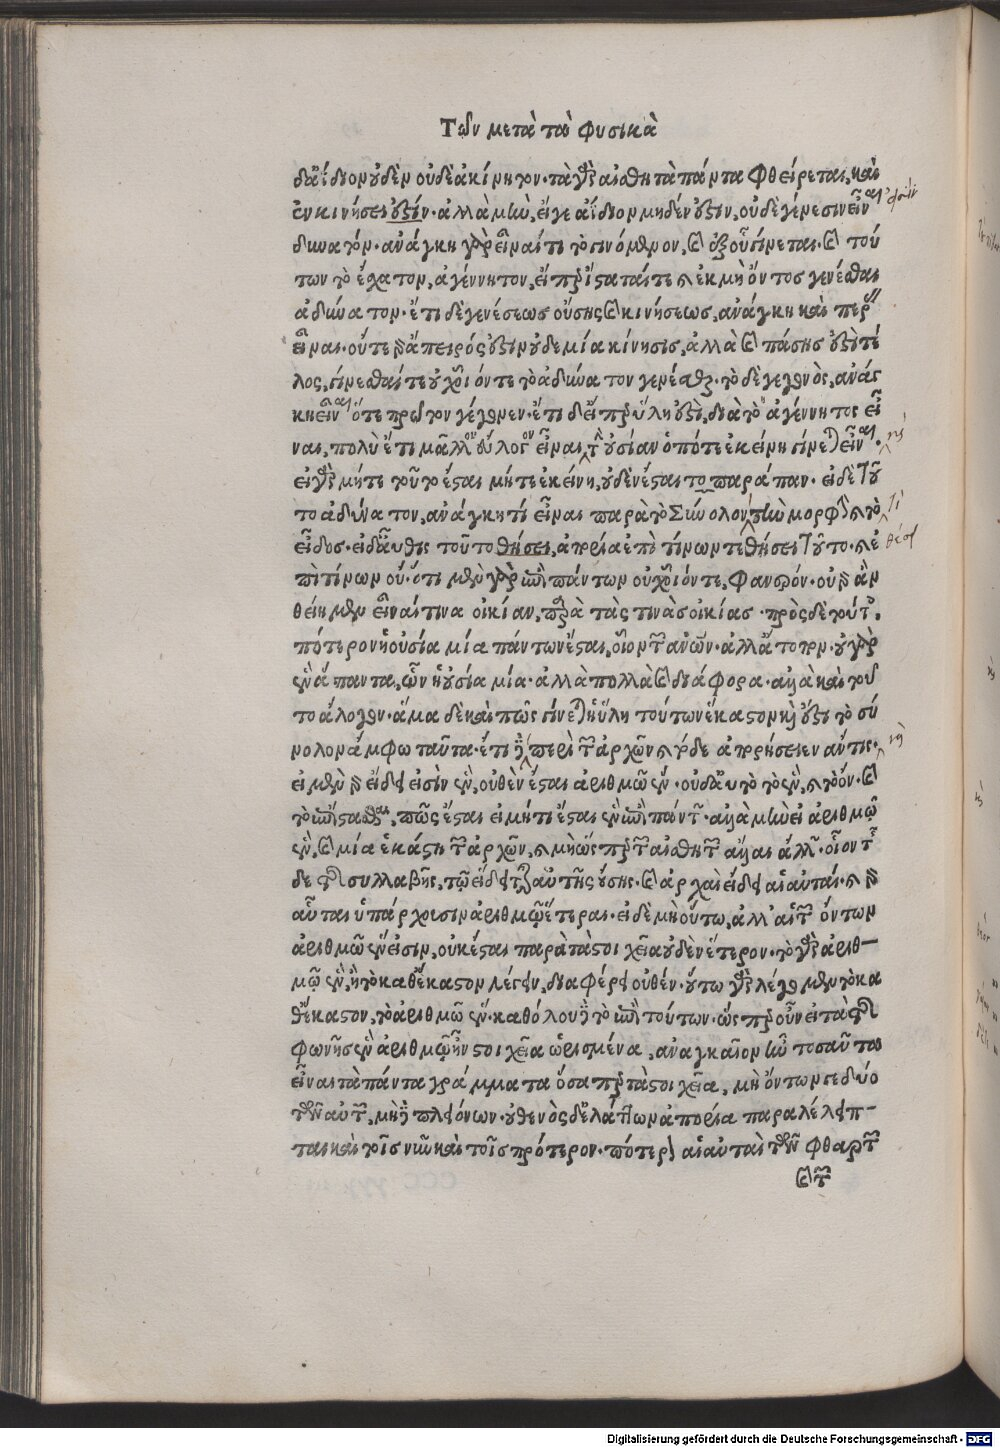 Τῶν μετὰ τὰ Φυσικὰ
δ' ἀΐδιον οὐδὲν οὐδὲ ἀκίνητον· τὰ γὰρ αἰσθητὰ πάντα φθείρεται, καὶ
ἐν κινήσει ἐστίν· ἀλλὰ μὴν, εἴγε ἀΐδιον μηδέν ἐστιν, οὐδὲ γένεσιν εἶναι
δυνατόν· ἀνάγκη γὰρ εἶναί τι τὸ γινόμενον, καὶ ἐξ οὗ γίνεται· καὶ τού
των τὸ ἔσχατον, ἀγέννητον, εἴπερ ἵσταταί τε καὶ ἐκ μὴ ὄντος γενέσθαι
ἀδύνατον· ἔτι δὲ γενέσεως οὔσης καὶ κινήσεως, ἀνάγκη καὶ πέρας
εἶναι· οὔτε γὰρ ἄπειρός ἐστιν οὐδεμία κίνησις, ἀλλὰ καὶ πάσης ἐστὶ τέ
λος, γίνεσθαί τε οὐχ οἷόν τε τὸ ἀδύνατον γενέσθαι· τὸ δὲ γεγονὸς, ἀνάγ
κη εἶναι ὅτε πρῶτον γέγονεν· ἔτι δ' εἴπερ ὕλη ἐστὶ, διὰ τὸ ἀγέννητος εἶ
ναι, πολὺ ἔτι μᾶλλον εὔλογον εἶναι, τὴν οὐσίαν ὁπότε ἐκείνη γίνεται εἶναι·
εἰ γὰρ μήτε τοῦτο ἔσται μήτε ἐκείνη, οὐδὲν ἔσται το παράπαν· εἰ δὲ τοῦ
το ἀδύνατον, ἀνάγκη τὶ εἶναι παρὰ τὸ Σύνολον, τὴν μορφὴν καὶ τὸ
εἶδος· εἰ δ' αὖθις τοῦτο θήσει, ἀπορία ἐπὶ τίνων τε θήσει τοῦτο· καὶ ἐ
πὶ τίνων οὔ· ὅτι μὲν γὰρ ἐπὶ πάντων οὐχ οἷόν τε, φανερόν· οὐ γὰρ ἂν
θείημεν εἶναί τινα οἰκίαν, παρὰ τὰς τινὰς οἰκίας· πρὸς δὲ τούτοις,
πότερον ἡ οὐσία μία πάντων ἔσται, οἷον τῶν ἀνθρώπων· ἀλλ' ἄτοπον· οὐ γὰρ
ἓν ἅπαντα, ὧν ἡ οὐσία μία· ἀλλὰ πολλὰ καὶ διάφορα· ἀλλὰ καὶ τοῦ
το ἄλογον· ἅμα δὲ καὶ πῶς γίνεται ἡ ὕλη τούτων ἕκαστον καὶ ἔστι τὸ σύ
νολον ἄμφω ταῦτα· ἔτι δὲ περὶ τῶν ἀρχῶν καὶ τόδε ἀπορήσειεν ἄν τις·
εἰ μὲν γὰρ εἴδει εἰσὶν ἓν, οὐθὲν ἔσται ἀριθμῷ ἕν· οὐδ' αὐτὸ τὸ ἓν, καὶ τὸ ὄν· καὶ
τὸ ἐπίστασθαι, πῶς ἔσται εἰ μή τι ἔσται ἓν ἐπὶ πάντων· ἀλλὰ μὴν εἰ ἀριθμῷ
ἓν, καὶ μία ἑκάστη τῶν ἀρχῶν, καὶ μὴ ὥσπερ τῶν αἰσθητῶν ἄλλαι ἄλλων· οἷον τῆσ
δε τῆς συλλαβῆς, τῷ εἴδει τῆς αὐτῆς οὔσης· καὶ ἀρχαὶ εἴδει αἱ αὐταί· καὶ γὰρ
αὗται ὑπάρχουσιν ἀριθμῷ ἕτεραι· εἰ δὲ μὴ οὕτω, ἀλλ' αἱ τῶν ὄντων
ἀριθμῷ ἕν εἰσιν, οὐκ ἔσται παρὰ τὰ στοιχεῖα οὐδὲν ἕτερον· τὸ γὰρ ἀριθ-
μῷ ἓν, ἢ τὸ καθ' ἕκαστον λέγειν, διαφέρει οὐθέν· οὕτω γὰρ λέγομεν τὸ κα
θ' ἕκαστον, τὸ ἀριθμῷ ἕν· καθόλου δὲ τὸ ἐπὶ τούτων· ὥσπερ οὖν εἰ τὰ τῆς
φωνῆς ἓν ἀριθμῷ ἦν στοιχεῖα ὡρισμένα, ἀναγκαῖον ἦν τοσαῦτα
εἶναι τὰ πάντα γράμματα ὅσα περ τὰ στοιχεῖα, μὴ ὄντων γε δύο
τῶν αὐτῶν, μὴ δὲ πλειόνων· οὐθενὸς δ' ἐλάττων ἀπορία παραλέλειπ-
ται καὶ τοῖς νῦν καὶ τοῖς πρότερον· πότερον αἱ αὐταὶ τῶν φθαρτῶν
καὶ τῶν
Digitalisierung gefördert durch die Deutsche Forschungsgemeinschaft - DFG